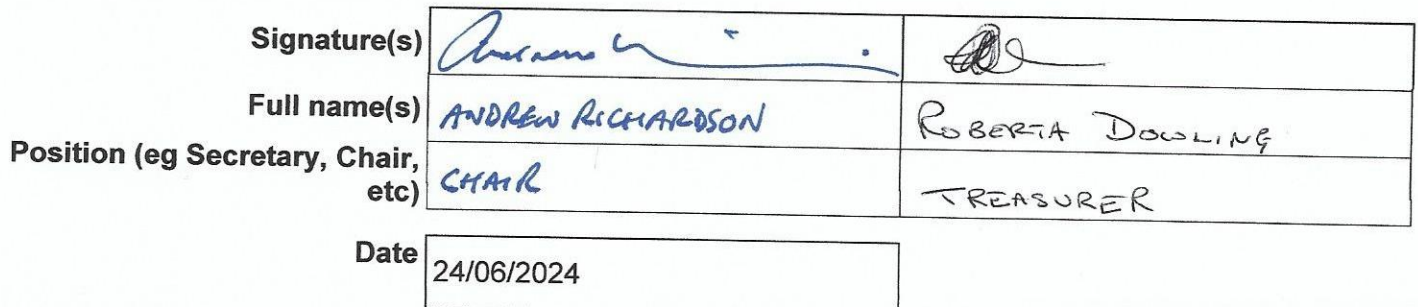 Signature(s)
Full name(s) ANDREW RICHARDSON ROBERTA DOWLING
Position (eg Secretary, Chair,
etc) CHAIR TREASURER
Date 24/06/2024